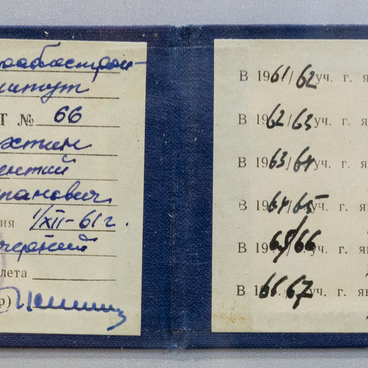 раблестрои-
ститут
Т № 66
хтин
ентий
рпанович
ия 1/XII-61 г.
черний
лета
р)
В 1961/62 уч. г. яв
В 1962/63 уч. г. яв
В 1963/64 уч. г. яв
В 1964/65 уч. г. яв
В 1965/66 уч. г. яв
В 1966/67 уч. г. яв